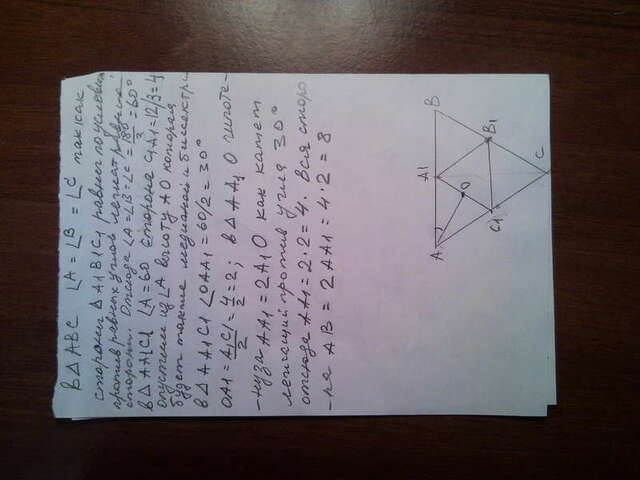 В △ ABC ∠A = ∠B = ∠C так как
стороны △ A1B1C1 равны по условию
против равных углов лежат равные
стороны. Отсюда ∠A = ∠B = ∠C = 180/3 = 60°
В △ AA1C1 ∠A = 60 сторона C1A1 = 12/3 = 4
опустим из ∠A высоту AO которая
будет также медианой и биссектри
В △ AA1C1 ∠OAA1 = 60/2 = 30°
OA1 = A1C1/2 = 4/2 = 2; В △ AA1O гипоте-
-нуза AA1 = 2A1O как катет
лежащий против угла 30°
отсюда AA1 = 2·2 = 4. Вся сторо
-на AB = 2AA1 = 4·2 = 8
A
A1
B
O
B1
C1
C